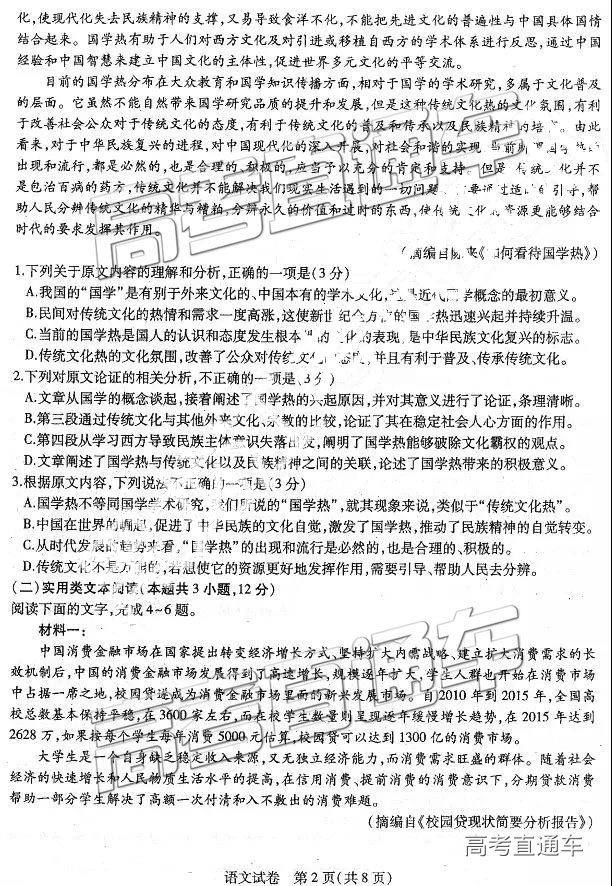 化,使现代化失去民族精神的支撑,又易导致食洋不化,不能把先进文化的普遍性与中国具体国情
结合起来。国学热有助于人们对西方文化及对引进或移植自西方的学术体系进行反思,通过中国
经验和中国智慧来建立中国文化的主体性,促进世界多元文化的平等交流。
目前的国学热分布在大众教育和国学知识传播方面,相对于国学的学术研究,多属于文化普及
的层面。它虽然不能自然带来国学研究品质的提升和发展,但是这种传统文化热的文化氛围,有利
于改善社会公众对于传统文化的态度,有利于传统文化的普及和传承以及民族精神的培。由此
看来,对于中华民族复兴的进程,对中国现代化的深入开展,对社会和谐的实现,当前国学热的
出现和流行,都是必然的,也是合理的、积极的,应当予以充分的肯定和支持。但是,传统文化并不
是包治百病的药方,传统文化并不能解决我们现实生活遇到的一切问题,要通过适的引导,帮
助人民分辨传统文化的精华与糟粕,分辨永久的价值和过时的东西,使传统文化的资源更能够结合
时代的要求发挥其作用。
(摘编自陈来《如何看待国学热》)
1.下列关于原文内容的理解和分析,正确的一项是(3分)
A.我国的“国学”是有别于外来文化的、中国本有的学术文化,这是近代国学概念的最初意义。
B.民间对传统文化的热情和需求一度高涨,这使新世纪全方位的国学热迅速兴起并持续升温。
C.当前的国学热是国人的认识和态度发生根本的文化的表现,是中华民族文化复兴的标志。
D.传统文化热的文化氛围,改善了公众对传统文化的态度,并且有利于普及、传承传统文化。
2.下列对原文论证的相关分析,不正确的一项是(3分)
A.文章从国学的概念谈起,接着阐述了国学热的兴起原因,并对其意义进行了论证,条理清晰。
B.第三段通过传统文化与其他外来文化、宗教的比较,论证了其在稳定社会人心方面的作用。
C.第四段从学习西方导致民族主体意识失落出发,阐明了国学热能够破除文化霸权的观点。
D.文章阐述了国学热与传统文化以及民族精神之间的关联,论述了国学热带来的积极意义。
3.根据原文内容,下列说法不正确的一项是(3分)
A.国学热不等同国学学术研究,我们所说的“国学热”,就其现象来说,类似于“传统文化热”。
B.中国在世界的崛起,促进了中华民族的文化自觉,激发了国学热,推动了民族精神的自觉转变。
C.从时代发展的趋势来看,“国学热”的出现和流行是必然的,也是合理的、积极的。
D.传统文化不是万能的,若想使它的资源更好地发挥作用,需要引导、帮助人民去分辨。
(二)实用类文本阅读(本题共3小题,12分)
阅读下面的文字,完成4~6题。
材料一:
中国消费金融市场在国家提出转变经济增长方式,坚持扩大内需战略、建立扩大消费需求的长
效机制后,中国的消费金融市场发展得到了高速增长、规模逐年扩大,学生人群也开始在消费市场
中占据一席之地,校园贷遂成为消费金融市场里面的新兴发展市场。自2010年到2015年,全国高
校总数基本保持平稳,在3600家左右,而在校学生数量则呈现逐年缓慢增长趋势,在2015年达到
2628万,如果按每个学生每年消费5000元估算,校园可以达到1300亿的消费市场。
大学生是一个自身缺乏稳定收入来源,又无独立经济能力,而消费需求旺盛的群体。随着社会
经济的快速增长和人民物质生活水平的提高,在信用消费、提前消费的消费意识下,分期贷款消费
帮助一部分学生解决了高额一次付清和入不敷出的消费难题。
(摘编自《校园贷现状简要分析报告》)
高考直通车
语文试卷 第2页(共8页)
高考直通车
高考直通车